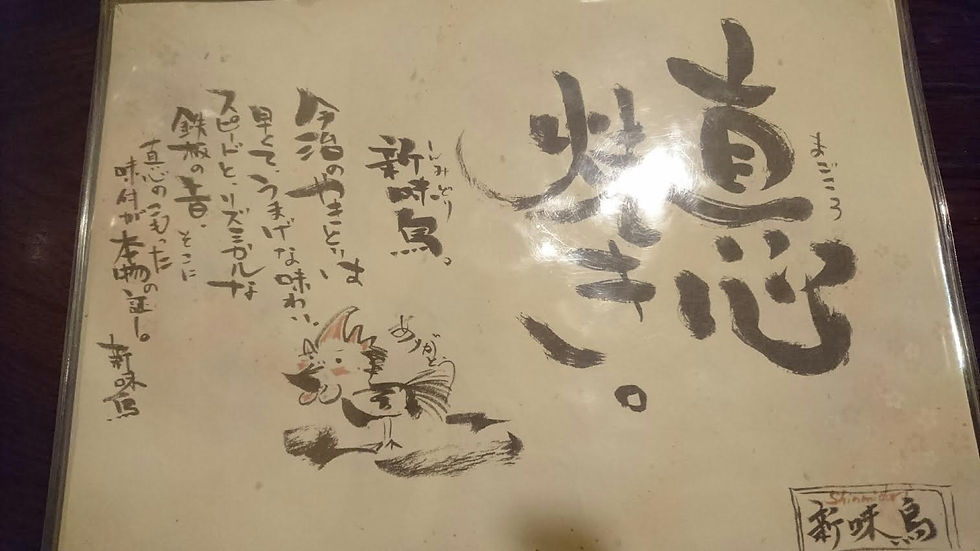 まごころ
真心
焼き。
しみどり
新味鳥。
今治のやきとりは
早くて、うまげな味わい。
スピードと、リズミカルな
鉄板の音、そこに
真心のこもった
味付が本物の証し。
新味鳥
ありがとう
新味鳥